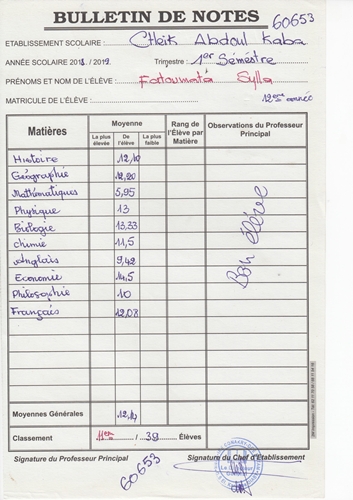 BULLETIN DE NOTES
60653
ETABLISSEMENT SCOLAIRE : Cheik Abdoul Kaba
ANNÉE SCOLAIRE 2018 / 2019 Trimestre : 1er Sémèstre
PRÉNOMS ET NOM DE L'ÉLÈVE : Fatoumata Sylla
MATRICULE DE L'ÉLÈVE : 12ème année
Matières Moyenne Rang de l'Élève par Matière Observations du Professeur Principal
La plus élevée De l'élève La plus faible
Histoire 12,10
Géographie 12,20
Mathématiques 5,95
Physique 13
Biologie 13,33
Chimie 11,5
Anglais 9,42
Economie 14,5
Philosophie 10
Français 12,08
Bon élève
Moyennes Générales
Classement 11ère / 39 Élèves
Signature du Professeur Principal Signature du Chef d'Établissement
60653